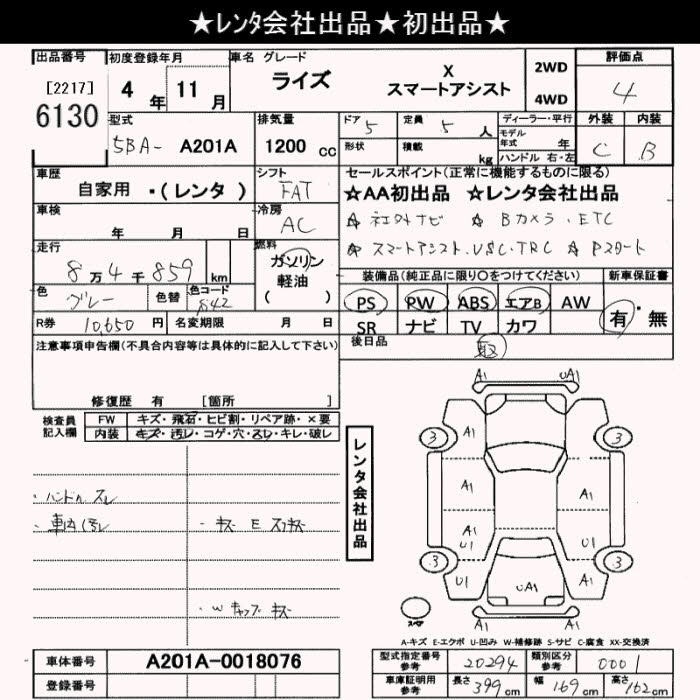 ★レンタ会社出品★初出品★
出品番号 初度登録年月 車名 グレード 2WD 評価点
[2217] 4年 11月 ライズ X スマートアシスト 4WD 4
6130
型式 排気量 ドア 5 定員 5人 ディーラー・平行 外装 内装
5BA- A201A 1200cc 形状 積載 kg モデル年式 年 C B
ハンドル 右・左
車歴 シフト セールスポイント(正常に機能するものに限る)
自家用 ・(レンタ) FAT ☆AA初出品 ☆レンタ会社出品
車検 冷房 ☆社外ナビ ☆Bカメラ.ETC
年 月 日 AC
走行 燃料 ☆スマートアシスト.VSC.TRC ☆Pスタート
8万4千859km ガソリン 装備品(純正品に限り○をつけてください) 新車保証書
軽油
( )
色 グレー 色替 色コード S42 PS PW ABS エアB AW 有・無
R券 10,650円 名変期限 月 日 SR ナビ TV カワ
注意事項申告欄(不具合内容等は具体的に記入して下さい) 後日品 取
修復歴 有 [箇所 ]
検査員記入欄 FW キズ・飛石・ヒビ割・リペア跡・×要
内装 キズ・汚レ・コゲ・穴・スレ・キレ・破レ
A1 UA1
3 A1 3
レンタ会社出品
・ハンドルスレ A1 A1
・車内汚レ ・キズ E スリキズ A1 U1 A1
3 3
U1 UA1 A1
・W キャップキズ
スペア
A1
A-キズ E-エクボ U-凹み W-補修跡 S-サビ C-腐食 XX-交換済
車体番号 A201A-0018076 型式指定番号参考 20294 類別区分参考 0001
登録番号 車庫証明用参考 長さ 399cm 幅 169cm 高さ 162cm